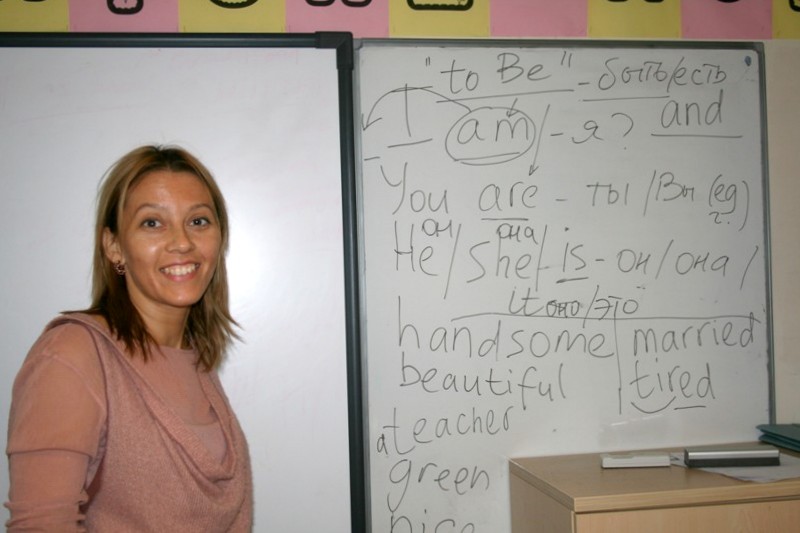 "to Be" - быть/есть
I am/ - я? and
You are - ты/Вы (ед
ч.)
он она/
He/she/ is - он/она/
it оно/это
handsome married
beautiful tired
a teacher
green
nice